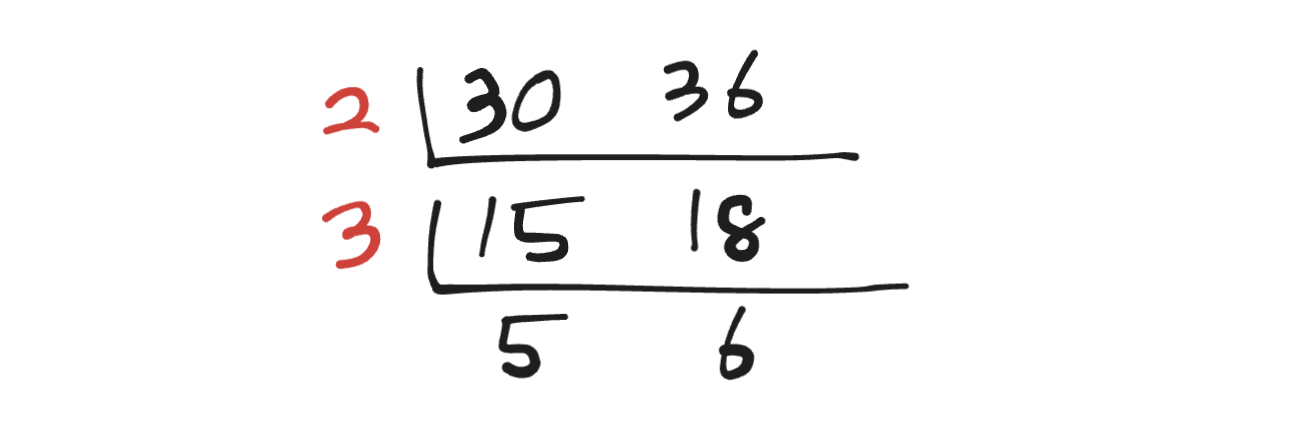 2 30 36
3 15 18
5 6